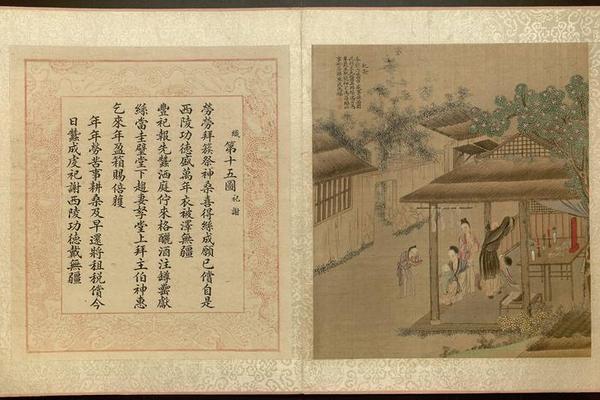 織 第十五圖 祀謝
勞勞拜簇祭神桑喜得絲成願已償自是
西陵功德盛萬年衣被澤無疆
豐祀報先蠶洒庭佇來格釃酒注罇罍獻
絲當圭璧堂下趨妻孥堂上拜主伯神惠
乞來年盈箱賜倍穫
年年勞苦事耕桑及早還將租稅償今
日蠶成虔祀謝西陵功德戴無疆